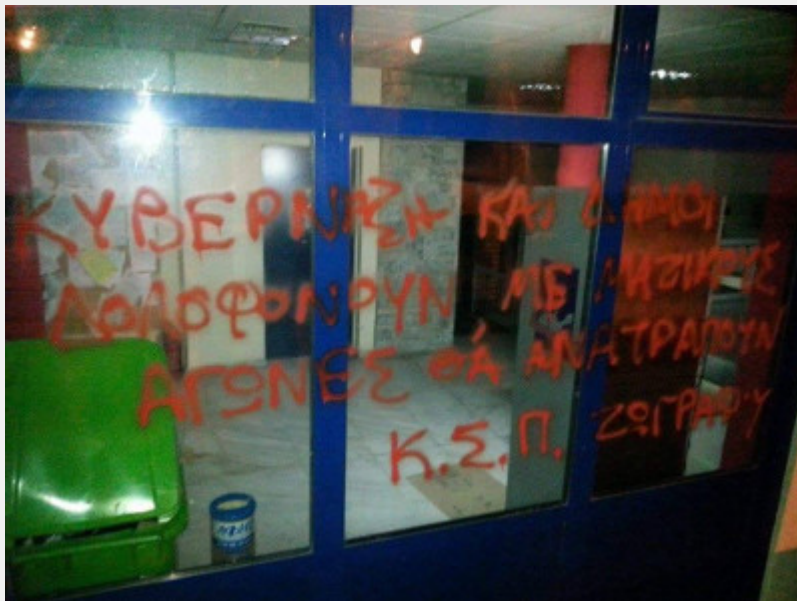 ΚΥΒΕΡΝΗΣΗ ΚΑΙ ΔΗΜΟΙ
ΔΟΛΟΦΟΝΟΥΝ ΜΕ
ΑΓΩΝΕΣ ΘΑ ΑΝΑΤΡΑΠΟΥΝ
Κ.Σ.Π. ΖΩΓΡΑΦΟΥ